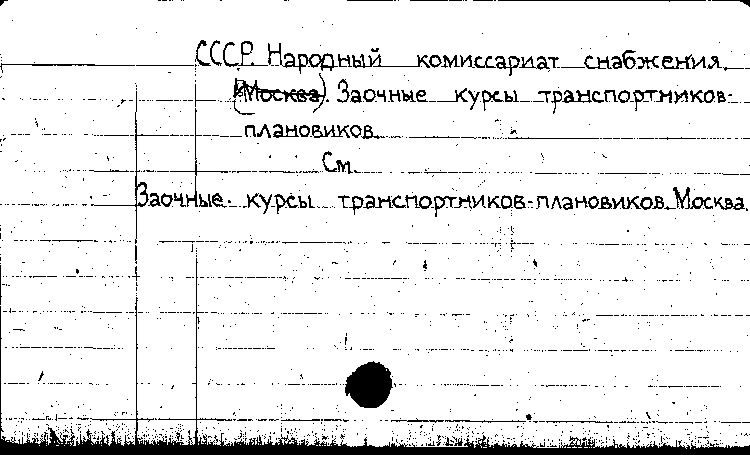 СССР. Народный комиссариат снабжения.
(Москва). Заочные курсы транспортников-
плановиков.
См.
Заочные курсы транспортников-плановиков. Москва.